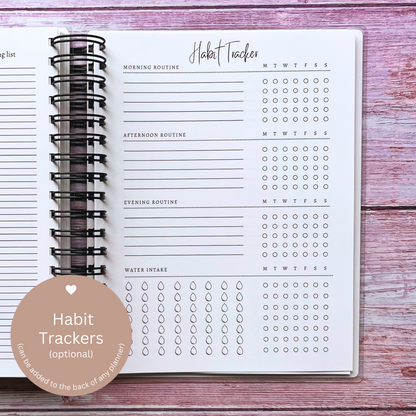 g list
Habit Tracker
MORNING ROUTINE M T W T F S S
AFTERNOON ROUTINE M T W T F S S
EVENING ROUTINE M T W T F S S
WATER INTAKE M T W T F S S
Habit
Trackers
(optional)
(can be added to the back of any planner)